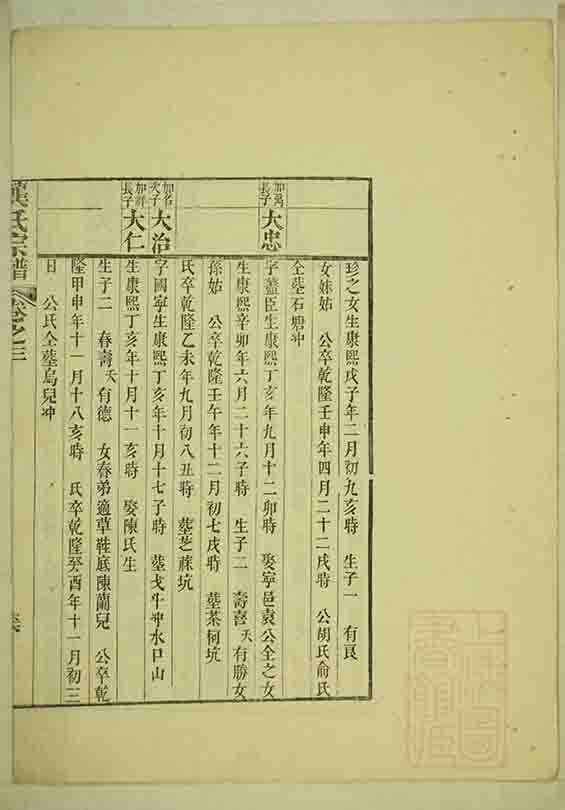 珍之女生康熙戊子年二月初九亥時 生子一 有良
女妹姑 公卒乾隆壬申年四月二十二戌時 公胡氏俞氏
仝塟石塘冲
長子大忠
字藎臣生康熙丁亥年九月十二卯時 娶寧邑袁公全之女
生康熙辛卯年六月二十六子時 生子二 壽喜夭有勝女
孫姑 公卒乾隆壬午年十二月初七戌時 塟茶柯坑
氏卒乾隆乙未年九月初八丑時 塟芝蔴坑
加名次子大治
字國寧生康熙丁亥年十月十七子時 塟戈牛冲水口山
加祥長子大仁
生康熙丁亥年十月十一亥時 娶陳氏生
生子二 春壽夭有德 女春弟適草鞋底陳蘭兒 公卒乾
隆甲申年十一月十八亥時 氏卒乾隆癸酉年十一月初三
日 公氏仝塟烏兒冲
氏宗譜 卷之三